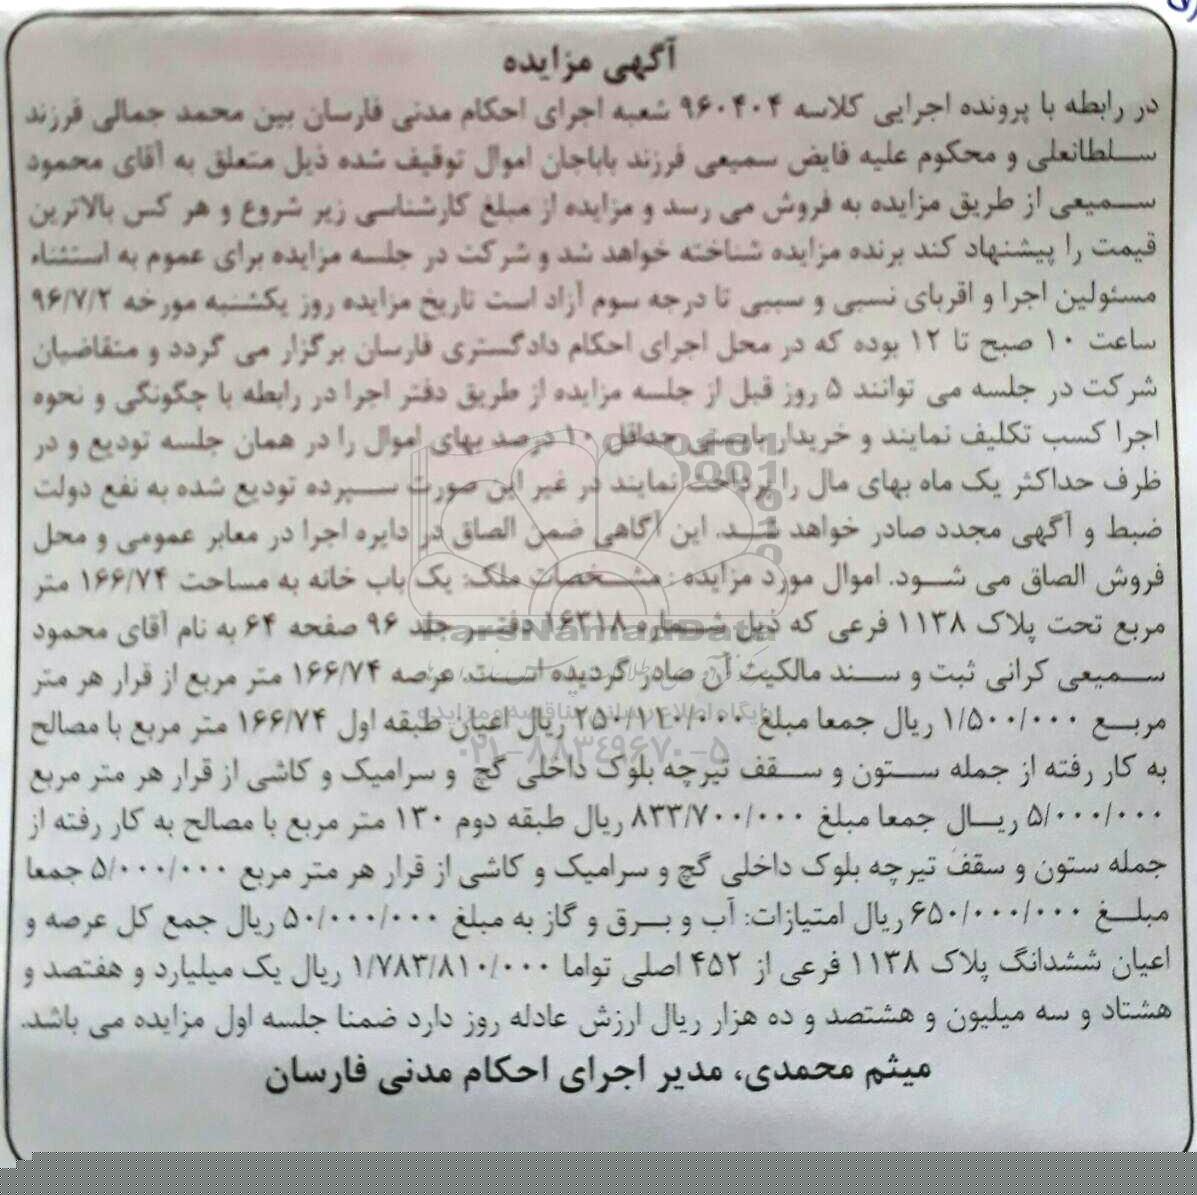 آگهی مزایده
در رابطه با پرونده اجرایی کلاسه ۹۶۰۴۰۴ شعبه اجرای احکام مدنی فارسان بین محمد جمالی فرزند
سلطانعلی و محکوم علیه فایض سمیعی فرزند باباجان اموال توقیف شده ذیل متعلق به آقای محمود
سمیعی از طریق مزایده به فروش می رسد و مزایده از مبلغ کارشناسی زیر شروع و هر کس بالاترین
قیمت را پیشنهاد کند برنده مزایده شناخته خواهد شد و شرکت در جلسه مزایده برای عموم به استثناء
مسئولین اجرا و اقربای نسبی و سببی تا درجه سوم آزاد است تاریخ مزایده روز یکشنبه مورخه ۹۶/۷/۲
ساعت ۱۰ صبح تا ۱۲ بوده که در محل اجرای احکام دادگستری فارسان برگزار می گردد و متقاضیان
شرکت در جلسه می توانند ۵ روز قبل از جلسه مزایده از طریق دفتر اجرا در رابطه با چگونگی و نحوه
اجرا کسب تکلیف نمایند و خریدار بایستی حداقل ۱۰ درصد بهای اموال را در همان جلسه تودیع و در
ظرف حداکثر یک ماه بهای مال را پرداخت نمایند در غیر این صورت سپرده تودیع شده به نفع دولت
ضبط و آگهی مجدد صادر خواهد شد. این آگاهی ضمن الصاق در دایره اجرا در معابر عمومی و محل
فروش الصاق می شود. اموال مورد مزایده : مشخصات ملک: یک باب خانه به مساحت ۱۶۶/۷۴ متر
مربع تحت پلاک ۱۱۳۸ فرعی که ذیل شماره ۱۶۳۱۸ دفتر جلد ۹۶ صفحه ۶۴ به نام آقای محمود
سمیعی کرانی ثبت و سند مالکیت آن صادر گردیده است. عرصه ۱۶۶/۷۴ متر مربع از قرار هر متر
مربع ۱/۵۰۰/۰۰۰ ریال جمعا مبلغ ۲۵۰/۱۱۰/۰۰۰ ریال اعیان طبقه اول ۱۶۶/۷۴ متر مربع با مصالح
به کار رفته از جمله ستون و سقف تیرچه بلوک داخلی گچ و سرامیک و کاشی از قرار هر متر مربع
۵/۰۰۰/۰۰۰ ریال جمعا مبلغ ۸۳۳/۷۰۰/۰۰۰ ریال طبقه دوم ۱۳۰ متر مربع با مصالح به کار رفته از
جمله ستون و سقف تیرچه بلوک داخلی گچ و سرامیک و کاشی از قرار هر متر مربع ۵/۰۰۰/۰۰۰ جمعا
مبلغ ۶۵۰/۰۰۰/۰۰۰ ریال امتیازات: آب و برق و گاز به مبلغ ۵۰/۰۰۰/۰۰۰ ریال جمع کل عرصه و
اعیان ششدانگ پلاک ۱۱۳۸ فرعی از ۴۵۲ اصلی تواما ۱/۷۸۳/۸۱۰/۰۰۰ ریال یک میلیارد و هفتصد و
هشتاد و سه میلیون و هشتصد و ده هزار ریال ارزش عادله روز دارد ضمنا جلسه اول مزایده می باشد.
میثم محمدی، مدیر اجرای احکام مدنی فارسان
ParsNamadData
پایگاه اطلاع رسانی مناقصه و مزایده
۰۲۱-۸۸۳۴۹۶۷۰-۵